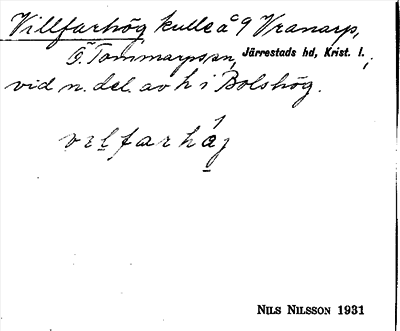 Villfarhög kulle å 9 Vranarp,
Ö. Tommarps sn, Järrestads hd, Krist. l.,
vid n. del. av h i Bolshög.
vɪlfarhǻj
NILS NILSSON 1931